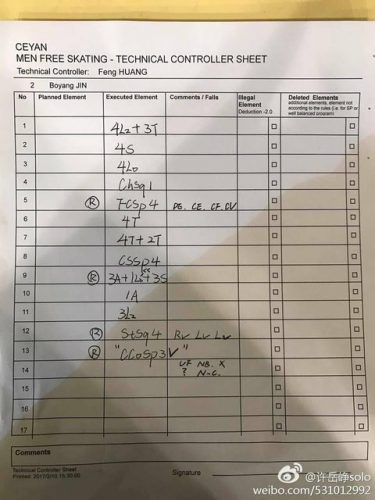 CEYAN
MEN FREE SKATING - TECHNICAL CONTROLLER SHEET
Technical Controller: Feng HUANG
2 Boyang JIN
No Planned Element Executed Element Comments / Falls Illegal Element Deduction -2.0 Deleted Elements additional elements, element not according to the rules (i.e. for SP or well balanced program)
1 4Lz+3T
2 4S
3 4Lo
4 ChSq1
5 R FCSp4
6 4T
7 4T+2T
8 CSSp4
9 R 3A+1Lo+3S
10 1A
11 3Lz
12 R StSq4
13 R "CCoSp3V"
14 UF NB. X
? N-C.
15
16
17
Comments
Technical Controller Sheet
Signature
@许岳峥solo
weibo.com/531012992